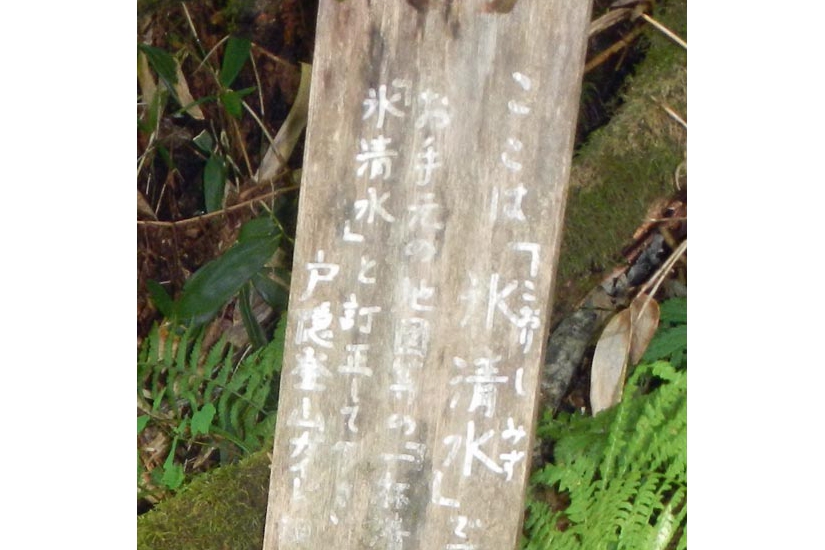 ここは「氷清水」で
こおりしみず
お手元の地図等の「
氷清水」と訂正して
戸隠登山ガイド